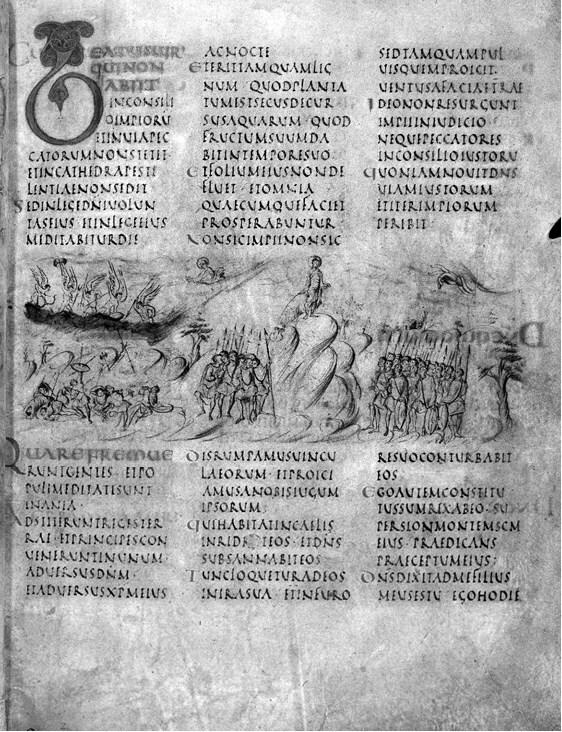 BEATUSUIR
QUINON
ABIIT
INCONSILI
OIMPIORU
ETINUIAPEC
CATORUMNONSTETIT
ETINCATHEDRAPESTI
LENTIAENONSEDIT
SEDINLEGEDNIUOLUN
TASEIUS ETINLEGEEIUS
MEDITABITURDIE
ACNOCTE
ETERITTAMQUAMLIG
NUM QUODPLANTA
TUMESTSECUSDECUR
SUSAQUARUM QUOD
FRUCTUMSUUMDA
BITINTEMPORESUO
ETFOLIUMEIUSNONDE
FLUET ETOMNIA
QUAECUMQUEFACIET
PROSPERABUNTUR
NONSICIMPIINONSIC
SEDTAMQUAMPUL
UISQUEMPROICIT
UENTUSAFACIETERRAE
IDEONONRESURGUNT
IMPIIINIUDICIO
NEQUEPECCATORES
INCONSILIOIUSTORU
QUONIAMNOUITDNS
UIAMIUSTORUM
ETITERIMPIORUM
PERIBIT
QUAREFREMUE
RUNTGENTES ETPO
PULIMEDITATISUNT
INANIA
ADSTITERUNTREGESTER
RAE ETPRINCIPESCON
UENERUNTINUNUM
ADUERSUSDNM
ETADUERSUSXPMEIUS
DISRUMPAMUSUINCU
LAEORUM ETPROICI
AMUSANOBISIUGUM
IPSORUM
QUIHABITATINCAELIS
INRIDEBITEOS ETDNS
SUBSANNABITEOS
TUNCLOQUETURADEOS
INIRASUA ETINFURO
RESUOCONTURBABIT
EOS
EGOAUTEMCONSTITU
TUSSUMREXABEO SU
PERSIONMONTEMSCM
EIUS PRAEDICANS
PRAECEPTUMEIUS
DNSDIXITADMEFILIUS
MEUSESTU EGOHODIE